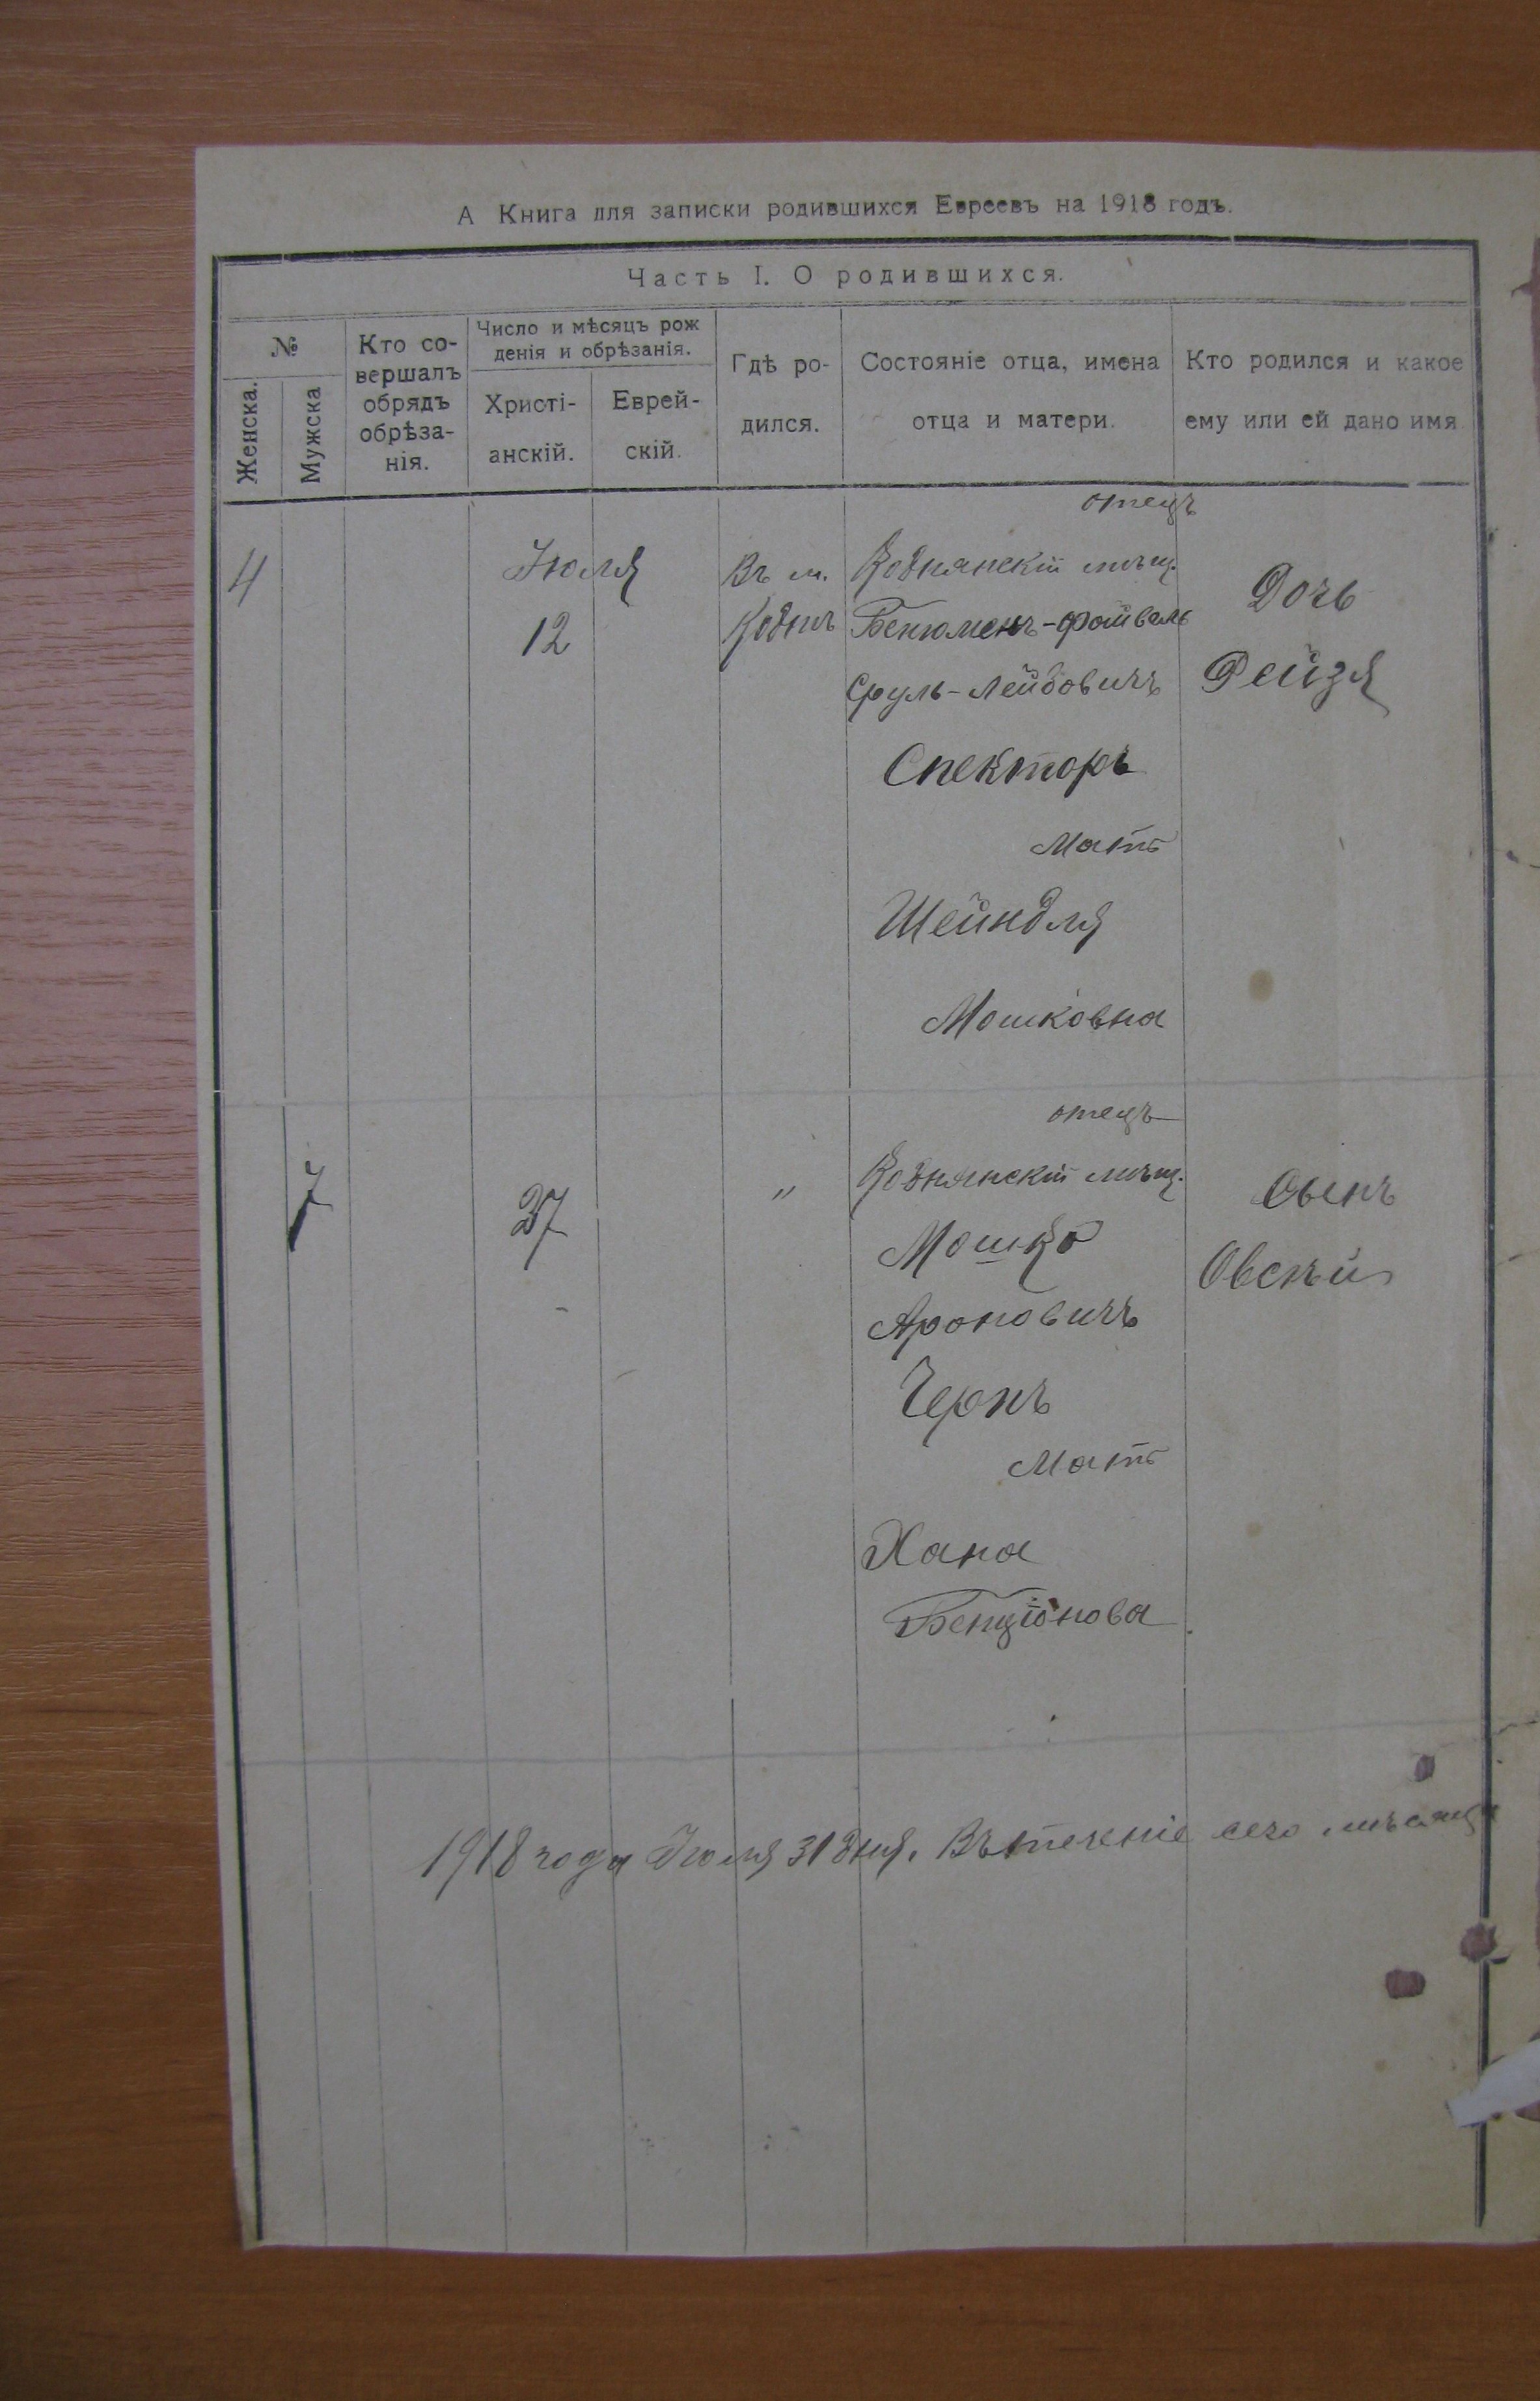 А Книга для записки родившихся Евреевъ на 1918 годъ.
Часть I. О родившихся.
№
Женска.
Мужска
Кто со-
вершалъ
обрядъ
обрѣза-
нія.
Число и мѣсяцъ рож
денія и обрѣзанія.
Христі-
анскій.
Еврей-
скій.
Гдѣ ро-
дился.
Состояніе отца, имена
отца и матери.
Кто родился и какое
ему или ей дано имя.
4
Іюля
12
Въ м.
Коднѣ
отецъ
Коднянскій мѣщ.
Бенюменъ-Файвель
Сруль-Лейбовичъ
Спекторъ
Мать
Шейндля
Мошковна
Дочь
Рейзя
7
27
"
отецъ
Коднянскій мѣщ.
Мошко
Ароновичъ
Чернъ
Мать
Хана
Бенціонова
Сынъ
Овсѣй
1918 года Іюля 31 дня. Въ теченіе сего мѣсяца